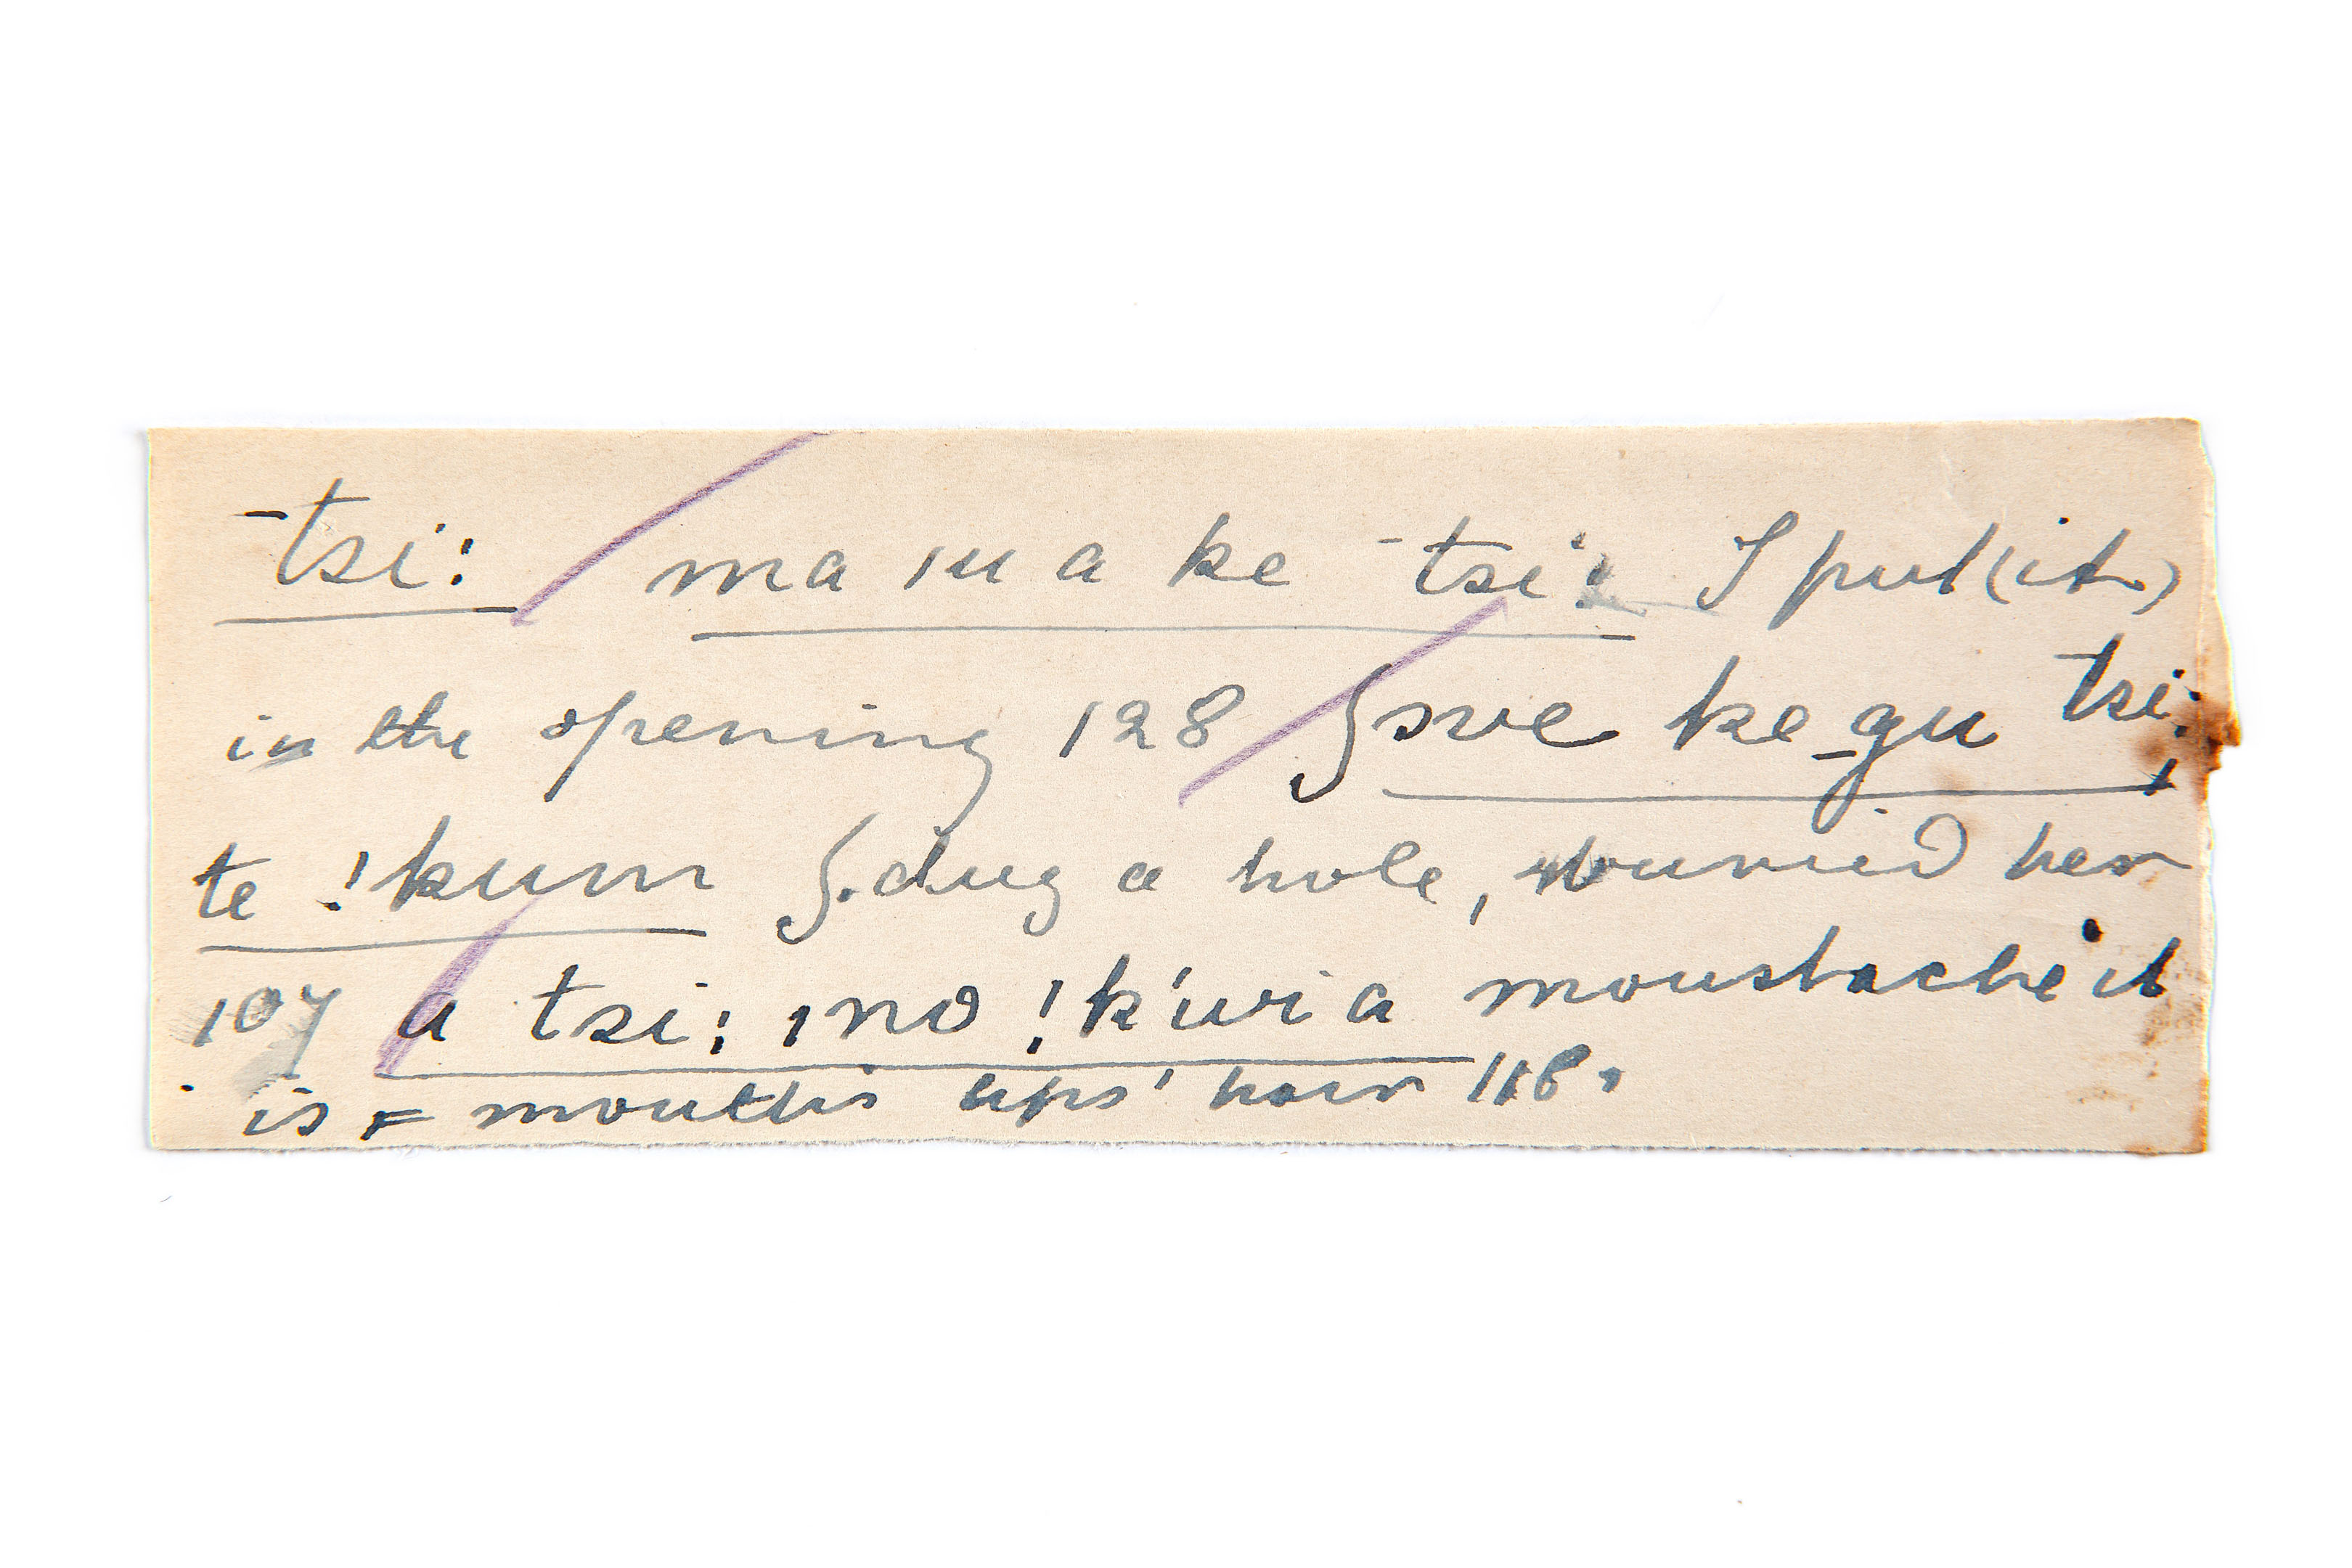 ¯tsi: ma ıu a ke ¯tsi: I put (it)
in the opening 128 ʃswe ke _gu tsi:,
te !kum ʃ. dug a hole, buried her
107 a tsi: ıno !k'wi a moustache it
is = mouth's lips' hair 118.